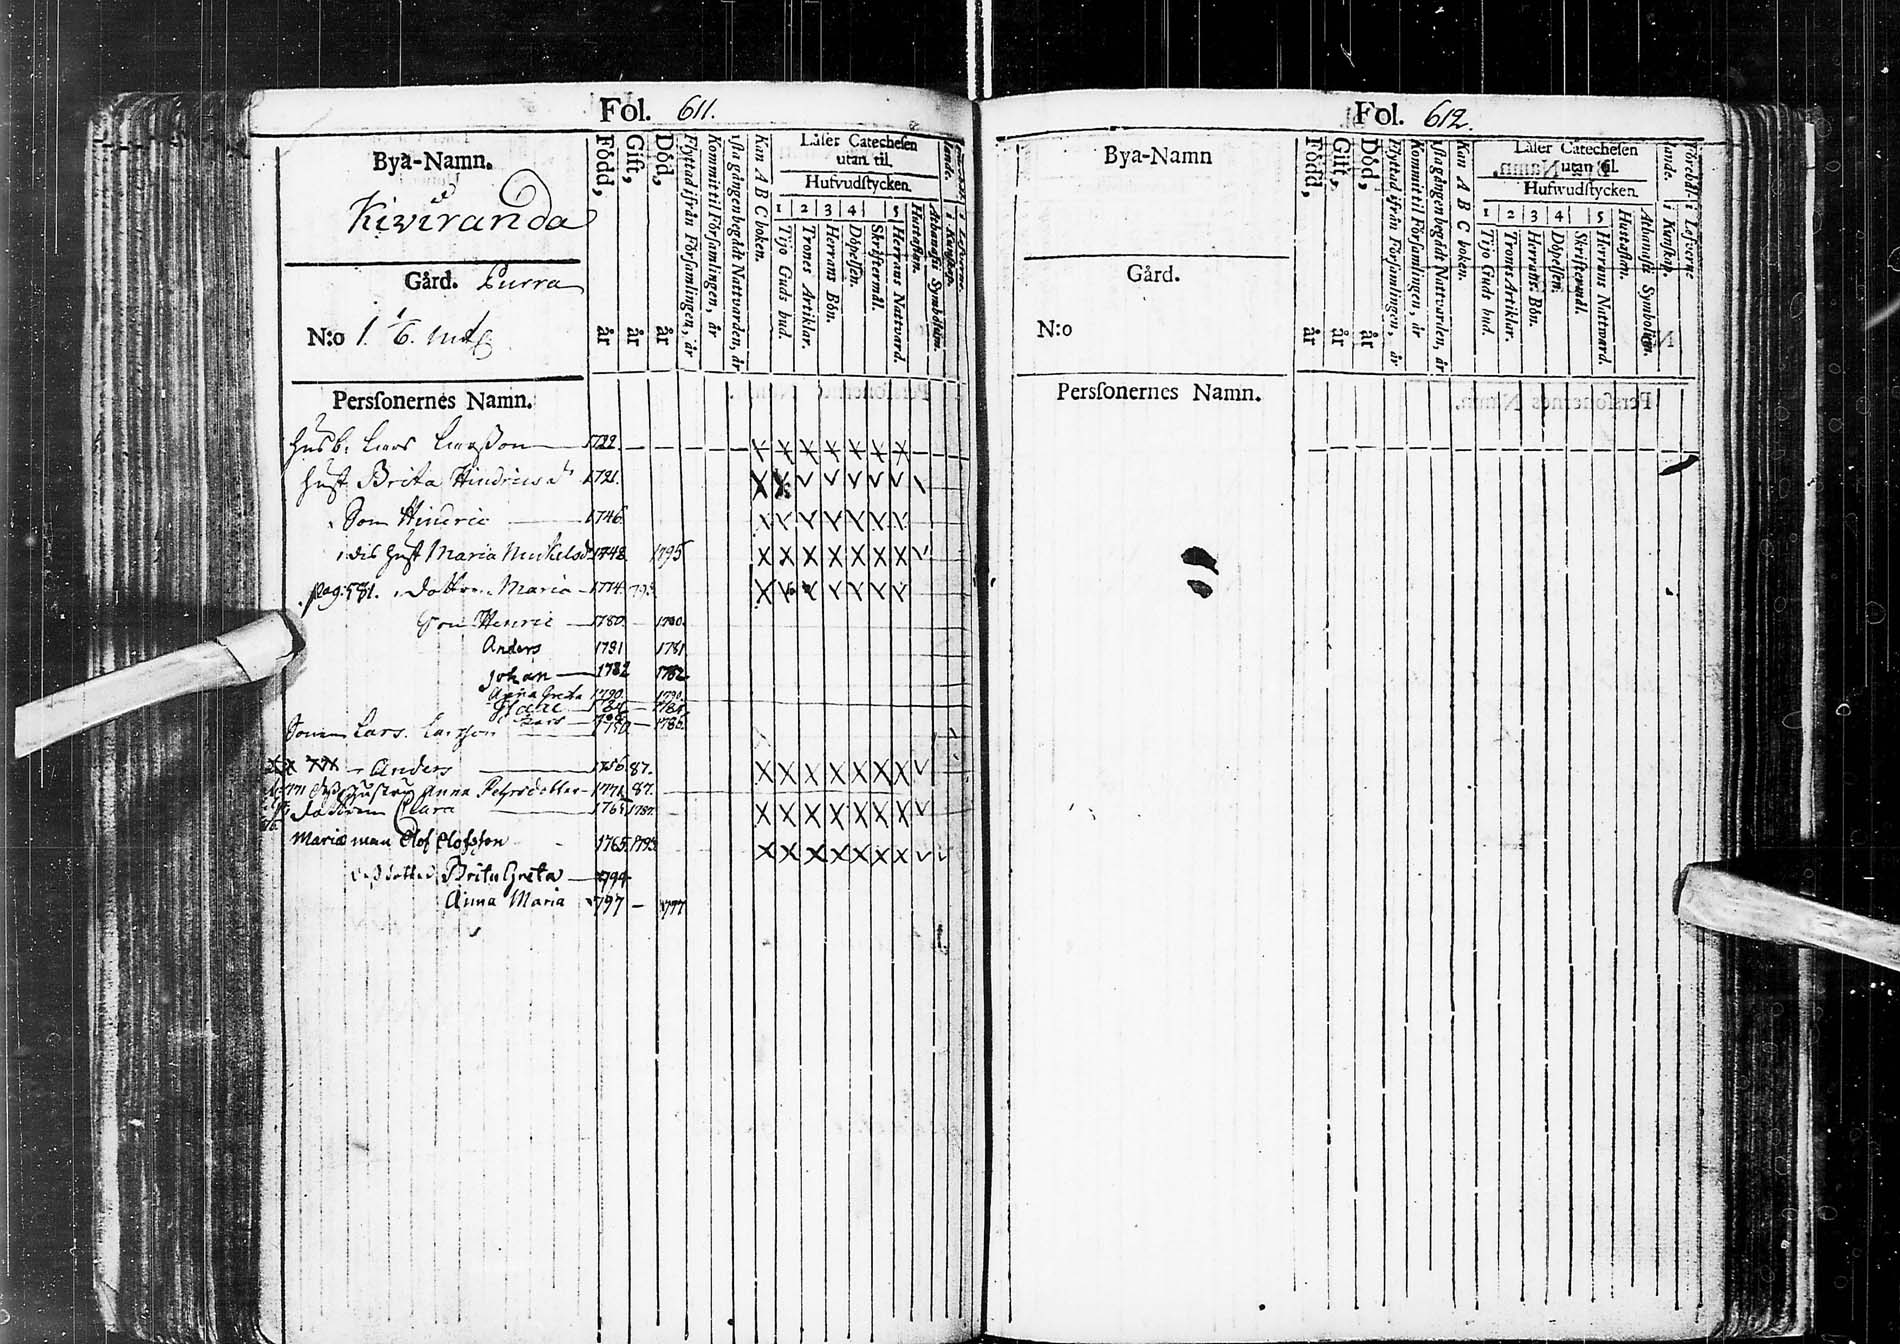 Fol. 611.
Bya-Namn.
Kiviranda
Gård. Purra
N:o 1. 1/6. mtl
Född, år
Gift, år
Död, år
Flyttad ifrån Församlingen, år
Kommit til Församlingen, år
1sta gången begådt Nattvarden, år
Kan A B C boken.
Läser Catechesen
utan til.
Hufvudstycken.
1 2 3 4 5
Tijo Guds bud.
Trones Artiklar.
Herrans Bön.
Döpelsen.
Skriftermål.
Herrans Nattvard.
Hustaflan.
Athanasii Symbolum.
Perssonernes Namn.
Husb. Lars Larsson 1722.
Hust Brita Hindricsdr 1721.
Son Hindric 1746
dis Hust Maria Mickelsd 1748 1795
pag: 581. Dottren Maria 1774
Son Henric 1780 1780.
Anders 1781 1781
Johan 1782 1782
Anna Greta 1790 1790.
Lars 1786
Sonen Lars Larsson
Anders 1756 87.
Hustru Anna Pehrsdotter 1771 87.
Dottren Clara 1765 1787
Marias man Olof Olofsson 1765 1793
dotter Brita Greta 1794
Anna Maria 1797 – 1797
Fol. 612.
Bya-Namn
Gård.
N:o
Född, år
Gift, år
Död, år
Flyttad ifrån Församlingen, år
Kommit til Församlingen, år
1sta gången begådt Nattvarden, år
Kan A B C boken.
Läser Catechesen
utan til.
Hufwudstycken.
1 2 3 4 5
Tijo Guds bud.
Trones Artiklar.
Herrans Bön.
Döpelsen.
Skriftermål.
Herrans Nattward.
Hustaflan.
Athanasii Symbolum.
Perssonernes Namn.